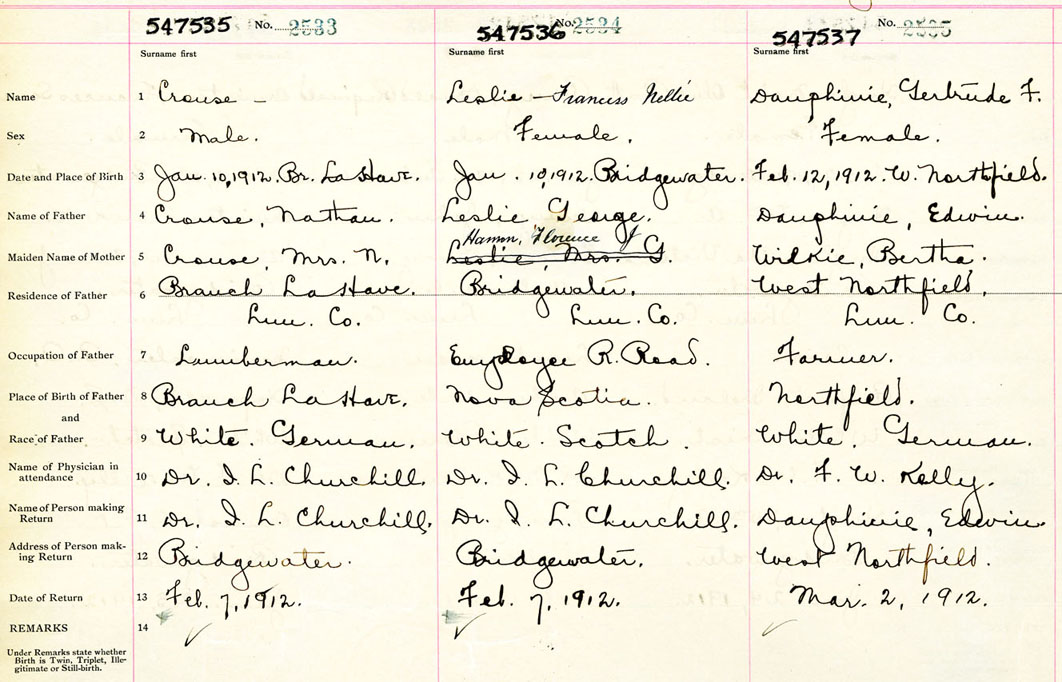 547535 No. 2533 547536 No. 2534 547537 No. 2535
Surname first Surname first Surname first
Name 1 Crouse — Leslie — Francess Nellie Dauphinie, Gertrude F.
Sex 2 Male. Female. Female.
Date and Place of Birth 3 Jan. 10, 1912. Br. LaHave. Jan. 10, 1912. Bridgewater. Feb. 12, 1912. W. Northfield.
Name of Father 4 Crouse, Nathan. Leslie George. Dauphinie, Edwin.
Hamm, Florence J
Maiden Name of Mother 5 Crouse, Mrs. N. Leslie, Mrs. G. Wilkie, Bertha.
Residence of Father 6 Branch LaHave. Bridgewater. West Northfield,
Lun. Co. Lun. Co. Lun. Co.
Occupation of Father 7 Lumberman. Employee R. Road. Farmer.
Place of Birth of Father 8 Branch LaHave. Nova Scotia. Northfield.
and
Race of Father 9 White. German. White. Scotch. White. German.
Name of Physician in
attendance 10 Dr. I. L. Churchill. Dr. I. L. Churchill. Dr. F. W. Kelly.
Name of Person making
Return 11 Dr. I. L. Churchill. Dr. I. L. Churchill. Dauphinie, Edwin.
Address of Person mak-
ing Return 12 Bridgewater. Bridgewater. West Northfield.
Date of Return 13 Feb. 7, 1912. Feb. 7, 1912. Mar. 2, 1912.
REMARKS 14
Under Remarks state whether
Birth is Twin, Triplet, Ille-
gitimate or Still-birth.